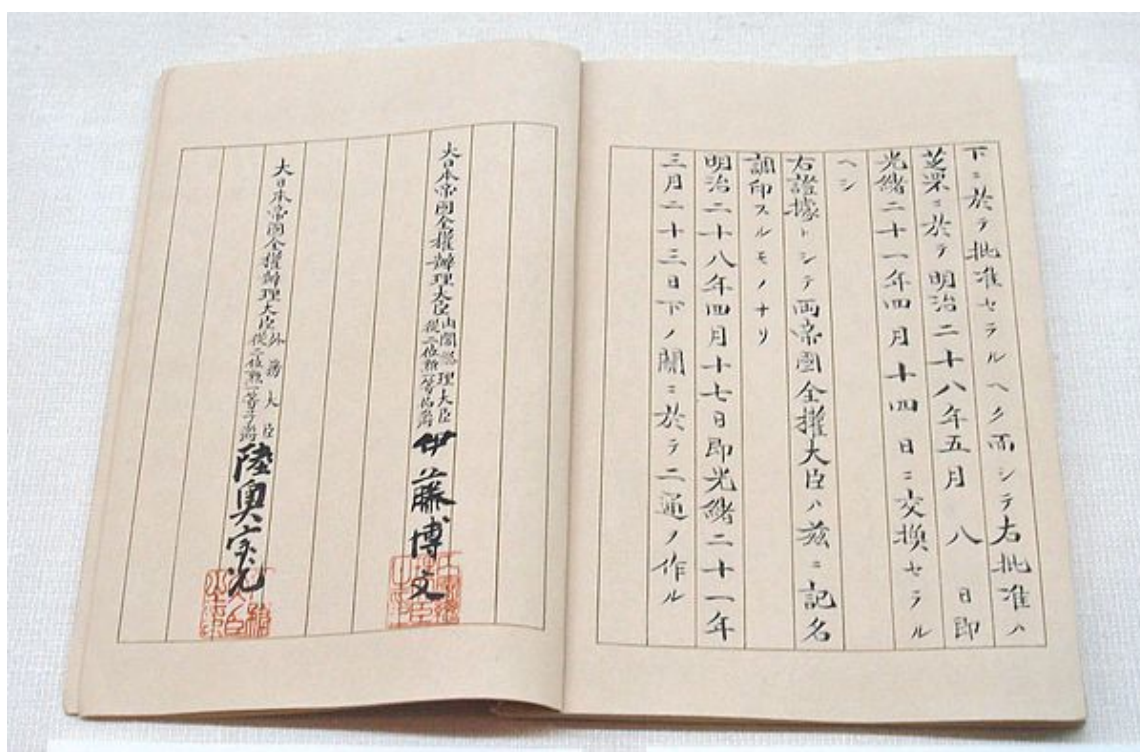 下ニ於テ批准セラルヘク而シテ右批准ハ
芝罘ニ於テ明治二十八年五月八日即
光緒二十一年四月十四日ニ交換セラル
ヘシ
右證據トシテ両帝國全權大臣ハ茲ニ記名
調印スルモノナリ
明治二十八年四月十七日即光緒二十一年
三月二十三日下ノ關ニ於テ二通ノ作ル
大日本帝國全權辦理大臣内閣總理大臣從二位勲一等伯爵伊藤博文
大日本帝國全權辦理大臣外務大臣從二位勲一等子爵陸奥宗光